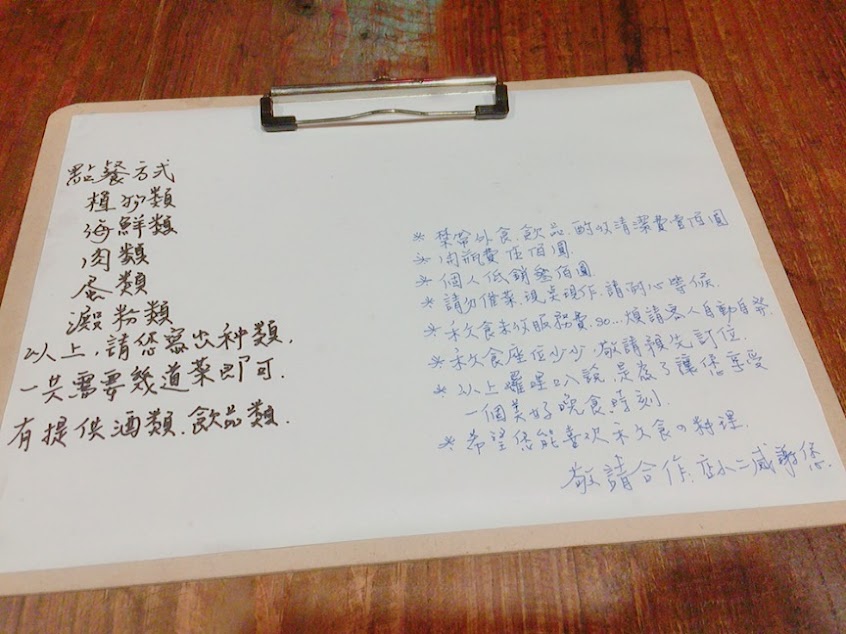 點餐方式
植物類
海鮮類
肉類
蛋類
澱粉類
以上,請您寫出种類,
一共需要幾道菜即可.
有提供酒類.飲品類.
＊禁帶外食.飲品.酌收清潔費壹佰圓
＊開瓶費伍佰圓.
＊個人低銷叁佰圓.
＊請勿催菜.現点現作.請耐心等候.
＊禾文食未收服務費.so...煩請客人自動自發.
＊禾文食座位少少.敬請預先訂位.
＊以上囉哩叭說.是為了讓您享受
一個美好晚食時刻.
＊希望您能喜欢禾文食の料理.
敬請合作.店小二感謝您.